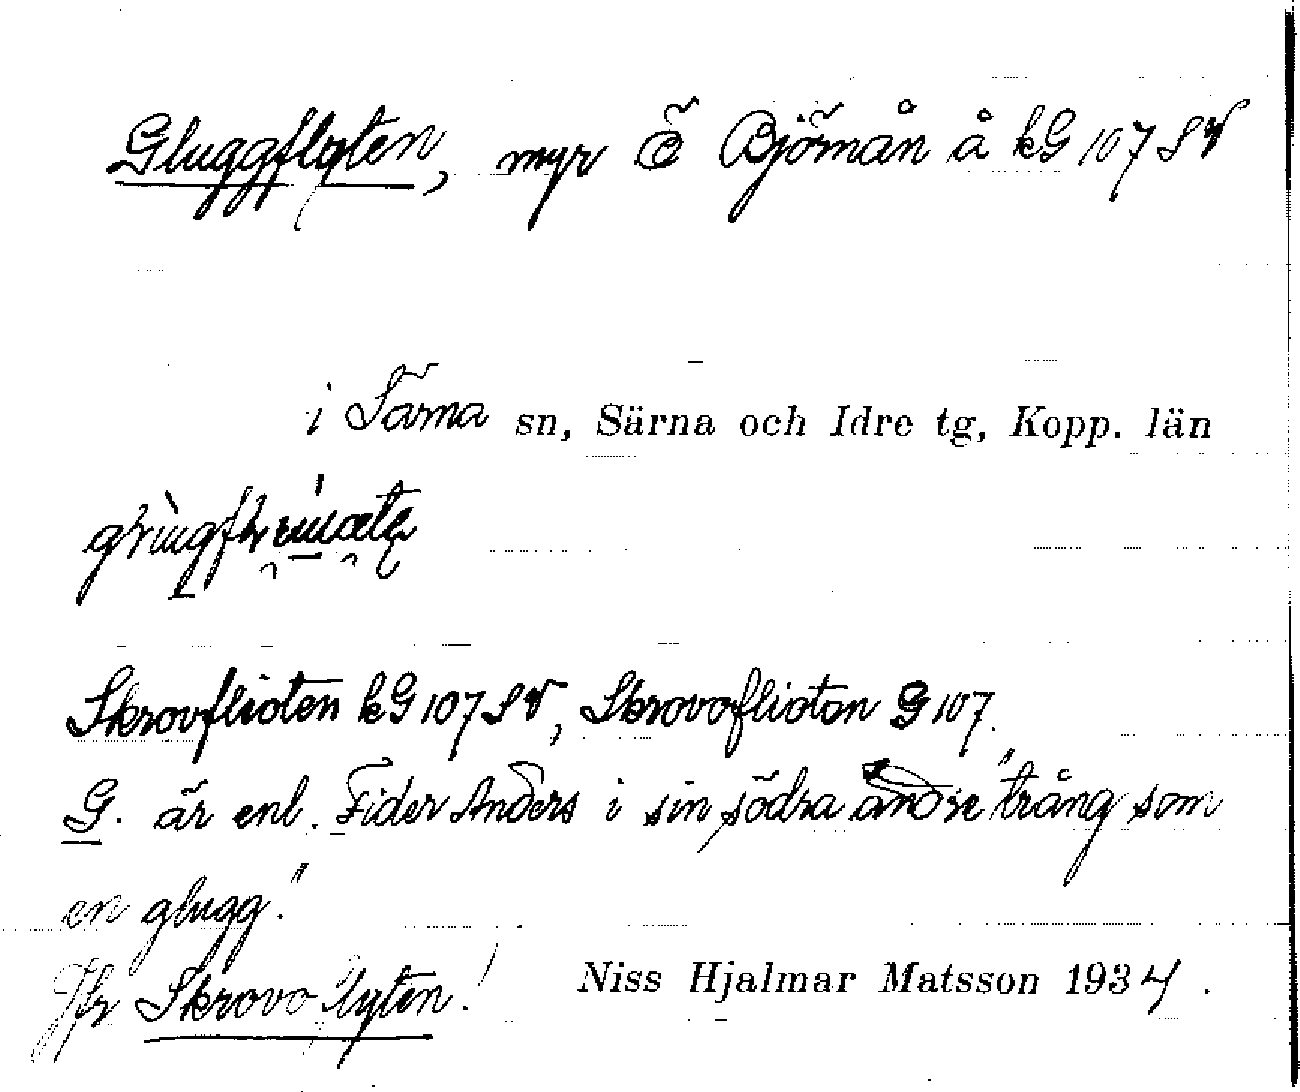 Gluggflyten, myr Ö Björnån å kG 107 SV
i Särna sn, Särna och Idre tg, Kopp. län
Skrovflioten kG 107 SV, Skrovoflioton G 107.
G. är enl. Fider Anders i sin södra ände "trång som
en glugg".
Jfr Skrovoflyten!
Niss Hjalmar Matsson 1934.